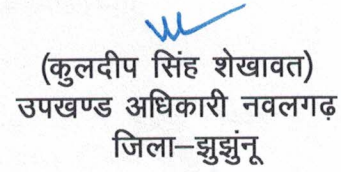 (कुलदीप सिंह शेखावत)
उपखण्ड अधिकारी नवलगढ़
जिला–झुझुंनू